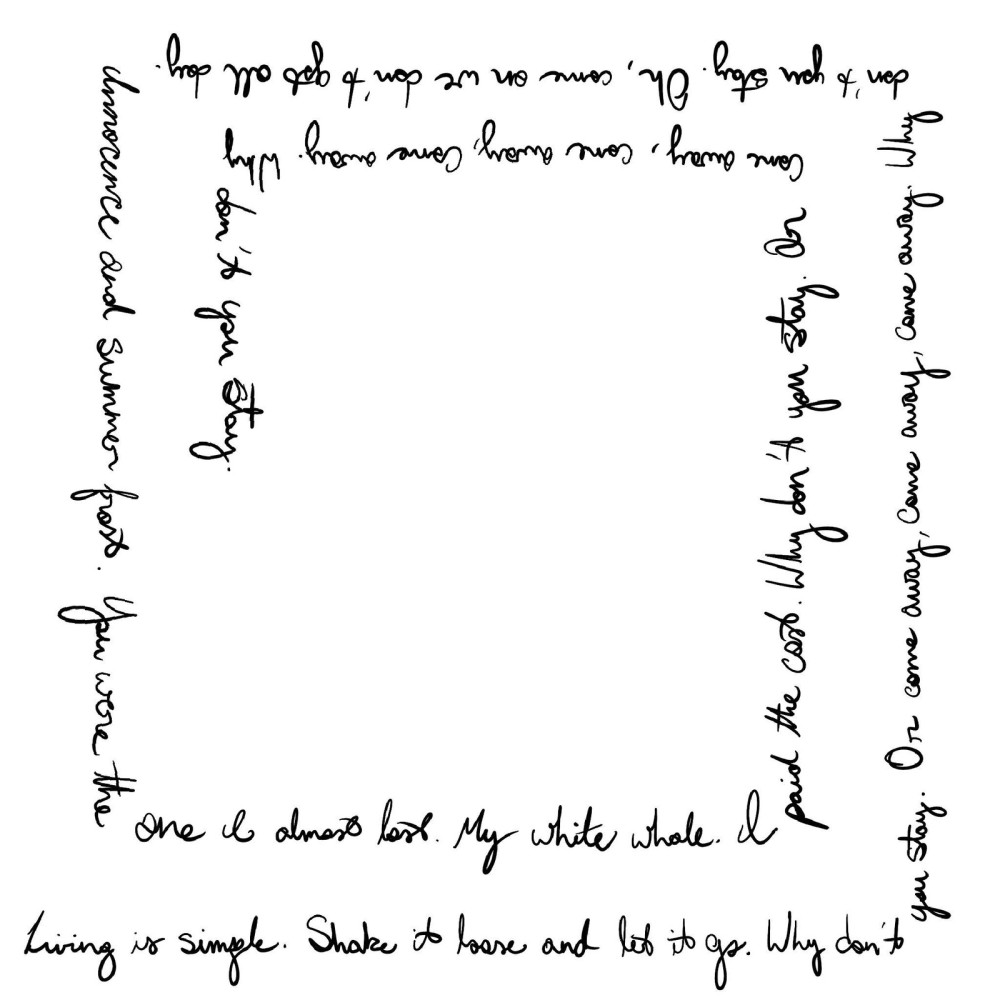 Living is simple. Shake it loose and let it go. Why don't
you stay. Or come away, come away, come away. Why
don't you stay. Oh, come on we don't got all day.
Innocence and summer frost. You were the
one I almost lost. My white whale. I
paid the cost. Why don't you stay. Or
come away, come away, come away. Why
don't you stay.